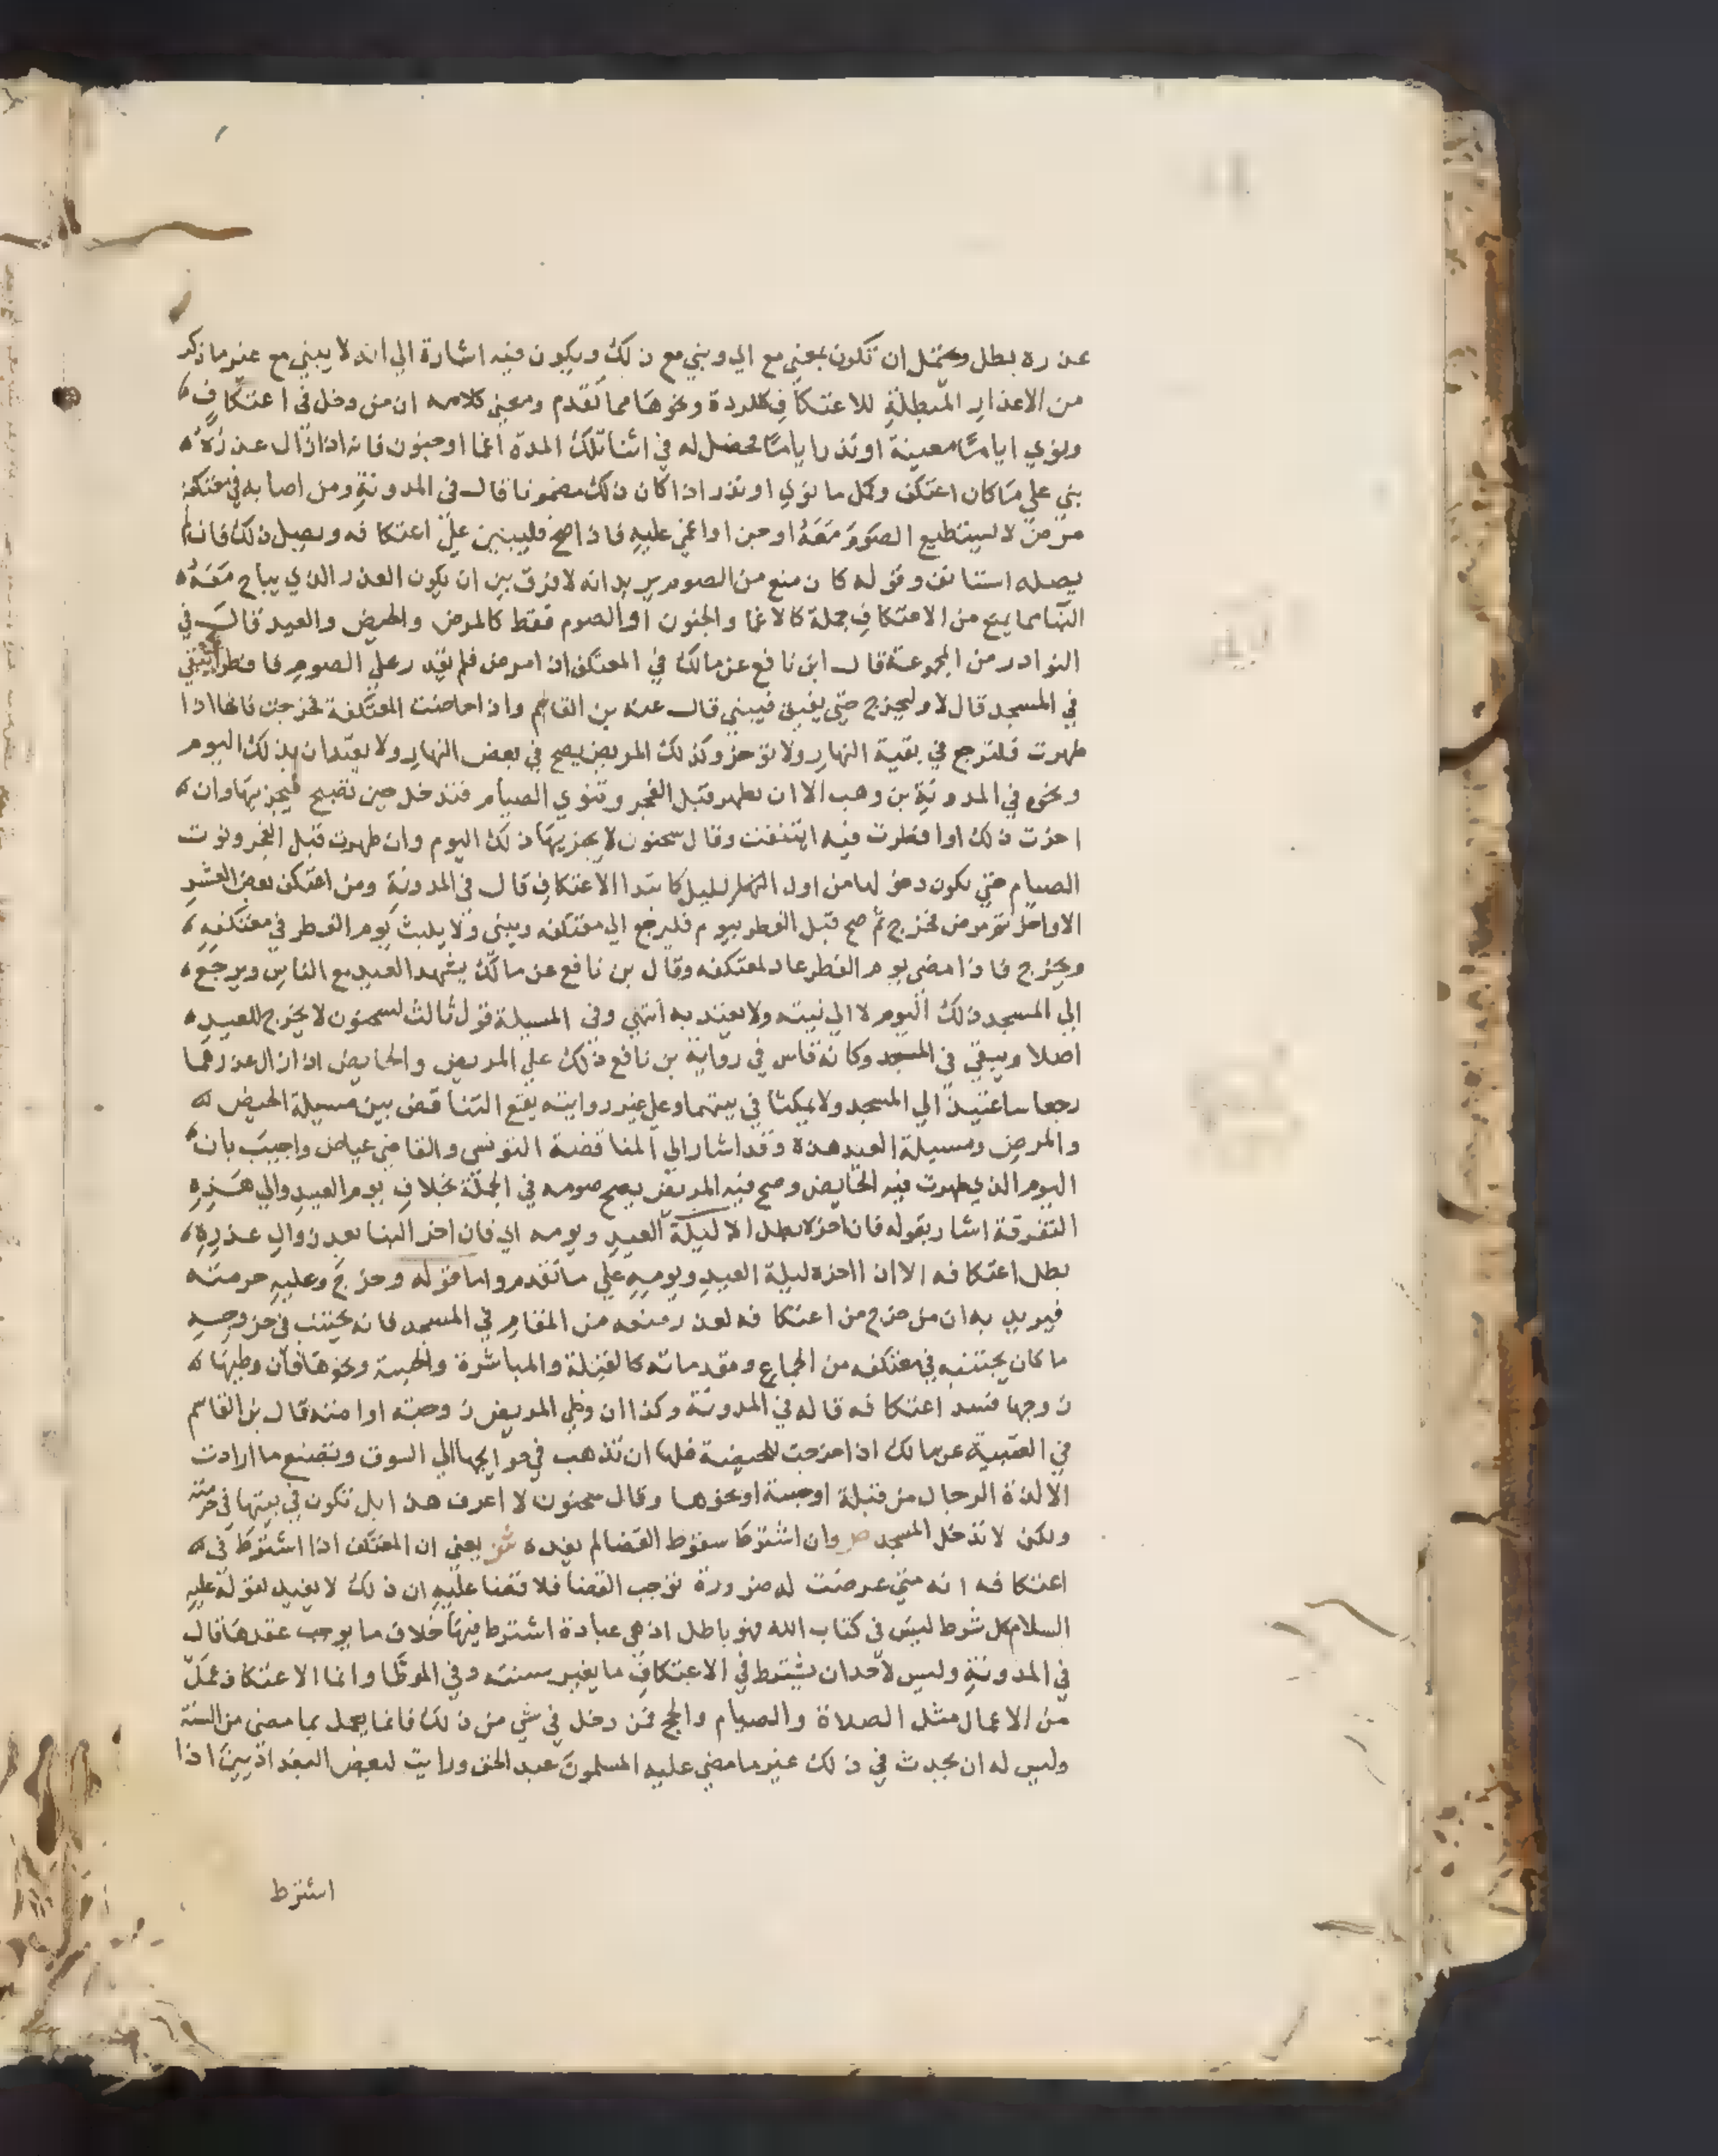 عذره بطل ويحتمل ان تكون بمعني مع اي ويبني مع ذلك ويكون فيه اشارة الي انه لا يبني مع غير ما ذكر
من الاعذار المبطلة للاعتكاف كالردة ونحوها مما تقدم ومعني كلامه ان من دخل في اعتكاف
ونوي اياما معينة او نذر اياما فحصل له في اثنا تلك المدة اغما او جنون فانه اذا زال عذره
بني علي ما كان اعتكف وكمل ما نوي او نذر اذا كان ذلك مضمونا قال في المدونة ومن اصابه في معتكفه
مرض لا يستطيع الصوم معه او جن او اغمي عليه فاذا صح فليبن علي اعتكافه ويصل ذلك فان لم
يصله استانف وقوله كان منع من الصوم يريد انه لا فرق بين ان يكون العذر الذي يباح معه
البنا مما يمنع من الاعتكاف جملة كالاغما والجنون او الصوم فقط كالمرض والحيض والعيد قال في
النوادر من المجموعة قال ابن نافع عن مالك في المعتكف اذا مرض فلم يقدر علي الصوم فافطر ايبقي
في المسجد قال لا وليخرج حتي يفيق فيبني قال عنه بن القاسم واذا حاضت المعتكفة فخرجت فانها اذا
طهرت فلترجع في بقية النهار ولا تؤخر وكذلك المريض يصح في بعض النهار ولا يعتدان بذلك اليوم
ونحوه في المدونة بن وهب الا ان تطهر قبل الفجر وتنوي الصيام فتدخل حين تصبح فيجزيها وان
اخرت ذلك او افطرت فيه ايتنفت وقال سحنون لا يجزيها ذلك اليوم وان طهرت قبل الفجر ونوت
الصيام حتي يكون دخولها من اول الليل كابتدا الاعتكاف قال في المدونة ومن اعتكف بعض العشر
الاواخر ثم مرض فخرج ثم صح قبل الفطر بيوم فليرجع الي معتكفه ويبني ولا يلبث يوم الفطر في معتكفه
ويخرج فاذا مضي يوم الفطر عاد لمعتكفه وقال بن نافع عن مالك يشهد العيد مع الناس ويرجع
الي المسجد ذلك اليوم لا الي بيته ولا يعتد به انتهي وفي المسيلة قول ثالث لسحنون لا يخرج للعيد
اصلا ويبقي في المسجد وكانه قاس في رواية بن نافع ذلك علي المريض والحايض اذا زال عذرهما
رجعا ساعتيذ الي المسجد ولا يمكثا في بيتهما وعلي غير روايته يقع التناقض بين مسيلة الحيض
والمرض ومسيلة العيد هذه وقد اشار الي المناقضة التونسي والقاضي عياض واجيب بان
اليوم الذي طهرت فيه الحايض وصح فيه المريض يصح صومه في الجملة بخلاف يوم العيد والي هذه
التفرقة اشار بقوله فان اخره بطل الا ليلة العيد ويومه اي فان اخر البنا بعد زوال عذره
بطل اعتكافه الا ان اخره ليلة العيد ويومه علي ما تقدم واما قوله وخرج وعليه حرمته
فيريد به ان من خرج من اعتكافه لعذر منعه من المقام في المسجد فانه يجتنب في خروجه
ما كان يجتنبه في معتكفه من الجماع ومقدماته كالقبلة والمباشرة والجسة ونحوها فان وطيها
زوجها فسد اعتكافه قاله في المدونة وكذا ان وطي المريض زوجته او امته قال بن القاسم
في العتبية عن مالك اذا خرجت للحيضة فلها ان تذهب في حوايجها الي السوق وتصنع ما ارادت
الا لذة الرجال من قبلة او جسة او نحوها وقال سحنون لا اعرف هذا بل تكون في بيتها في حرمته
ولكن لا تدخل المسجد ص وان اشترط سقوط القضا لم يفده ش يعني ان المعتكف اذا اشترط في
اعتكافه انه متي عرضت له ضرورة توجب القضا فلا قضا عليه ان ذلك لا يفيد لقوله عليه
السلام كل شرط ليس في كتاب الله فهو باطل اذ هي عبادة اشترط فيها خلاف ما يوجب عقدها قال
في المدونة وليس لاحد ان يشترط في الاعتكاف ما يغير سنته وفي الموطا وانما الاعتكاف عمل
من الاعمال مثل الصلاة والصيام والحج فمن دخل في شي من ذلك فانما يعمل بما مضي من السنة
وليس له ان يحدث في ذلك غير ما مضي عليه المسلمون عبد الحق ورايت لبعض البغداذيين اذا
اشترط